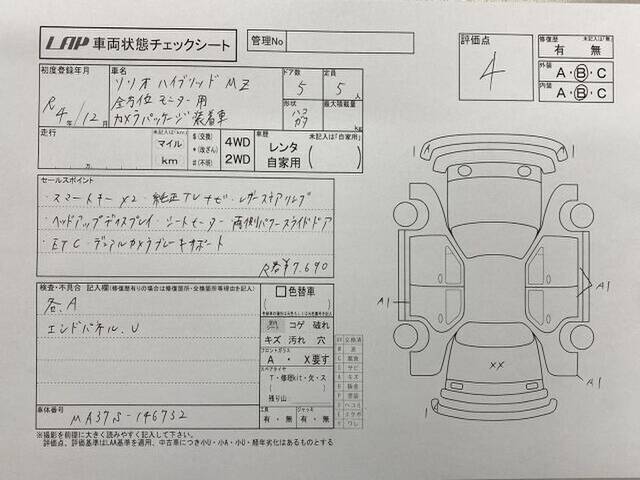 LAP 車両状態チェックシート
管理No
評価点
4
修復歴 未記入は「無」
有 ・ 無
外装 A・B・C
内装 A・B・C
初度登録年月
R4年/12月
車名
ソリオハイブリッド MZ
全方位モニター用
カメラパッケージ装着車
ドア数
5
定員
5人
形状
ハコ
最大積載量
kg
走行
未記入は「km」
マイル
km
$(交換)
*(改ざん)
#(不明)
4WD
2WD
車歴 未記入は「自家用」
レンタ
自家用
セールスポイント
・スマートキーX2・純正TVナビ・レザーステアリング
・ヘッドアップディスプレイ・シートヒーター・両側パワースライドドア
・ETC・デュアルカメラブレーキサポート
R券¥7.690
検査・不具合 記入欄(修復歴有りの場合は修復箇所・交換箇所等理由を記入)
各.A
エンドパネル.U
色替車
コゲ 破れ
キズ 汚れ 穴
フロントガラス
A ・ X要す
スペアタイヤ
T・修理kit・欠・ス
残り山
工具
有・無
ジャッキ
有・無
車体番号
MA37S-146732
※撮影を前提に大きく読みやすく記入して下さい。
評価点、評価基準はLAA基準を適用、中古車につき小U・小A・小U・経年劣化はあるものとする
A1
A1
A1
XX